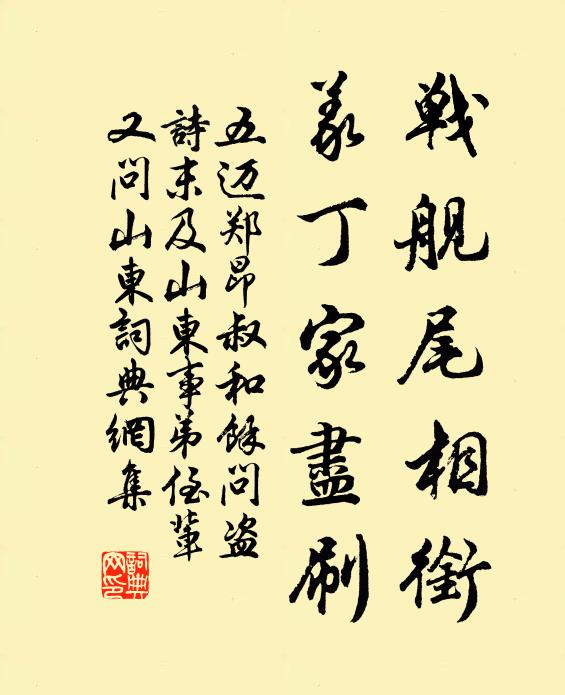 战舰尾相銜
義丁家盡刷
五迈郑昂叔和餘问盗
詩末及山東事弟侄輩
又问山東詞典網集
詞典
网印